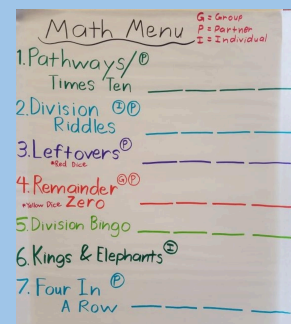 Math Menu
G = Group
P = Partner
I = Individual
1. Pathways/ Ⓟ
Times Ten
2. Division Ⓘ Ⓟ
Riddles
3. Leftovers Ⓟ
*Red Dice
4. Remainder Ⓖ Ⓟ
*Yellow Dice Zero
5. Division Bingo
6. Kings & Elephants Ⓘ
7. Four In Ⓟ
A Row